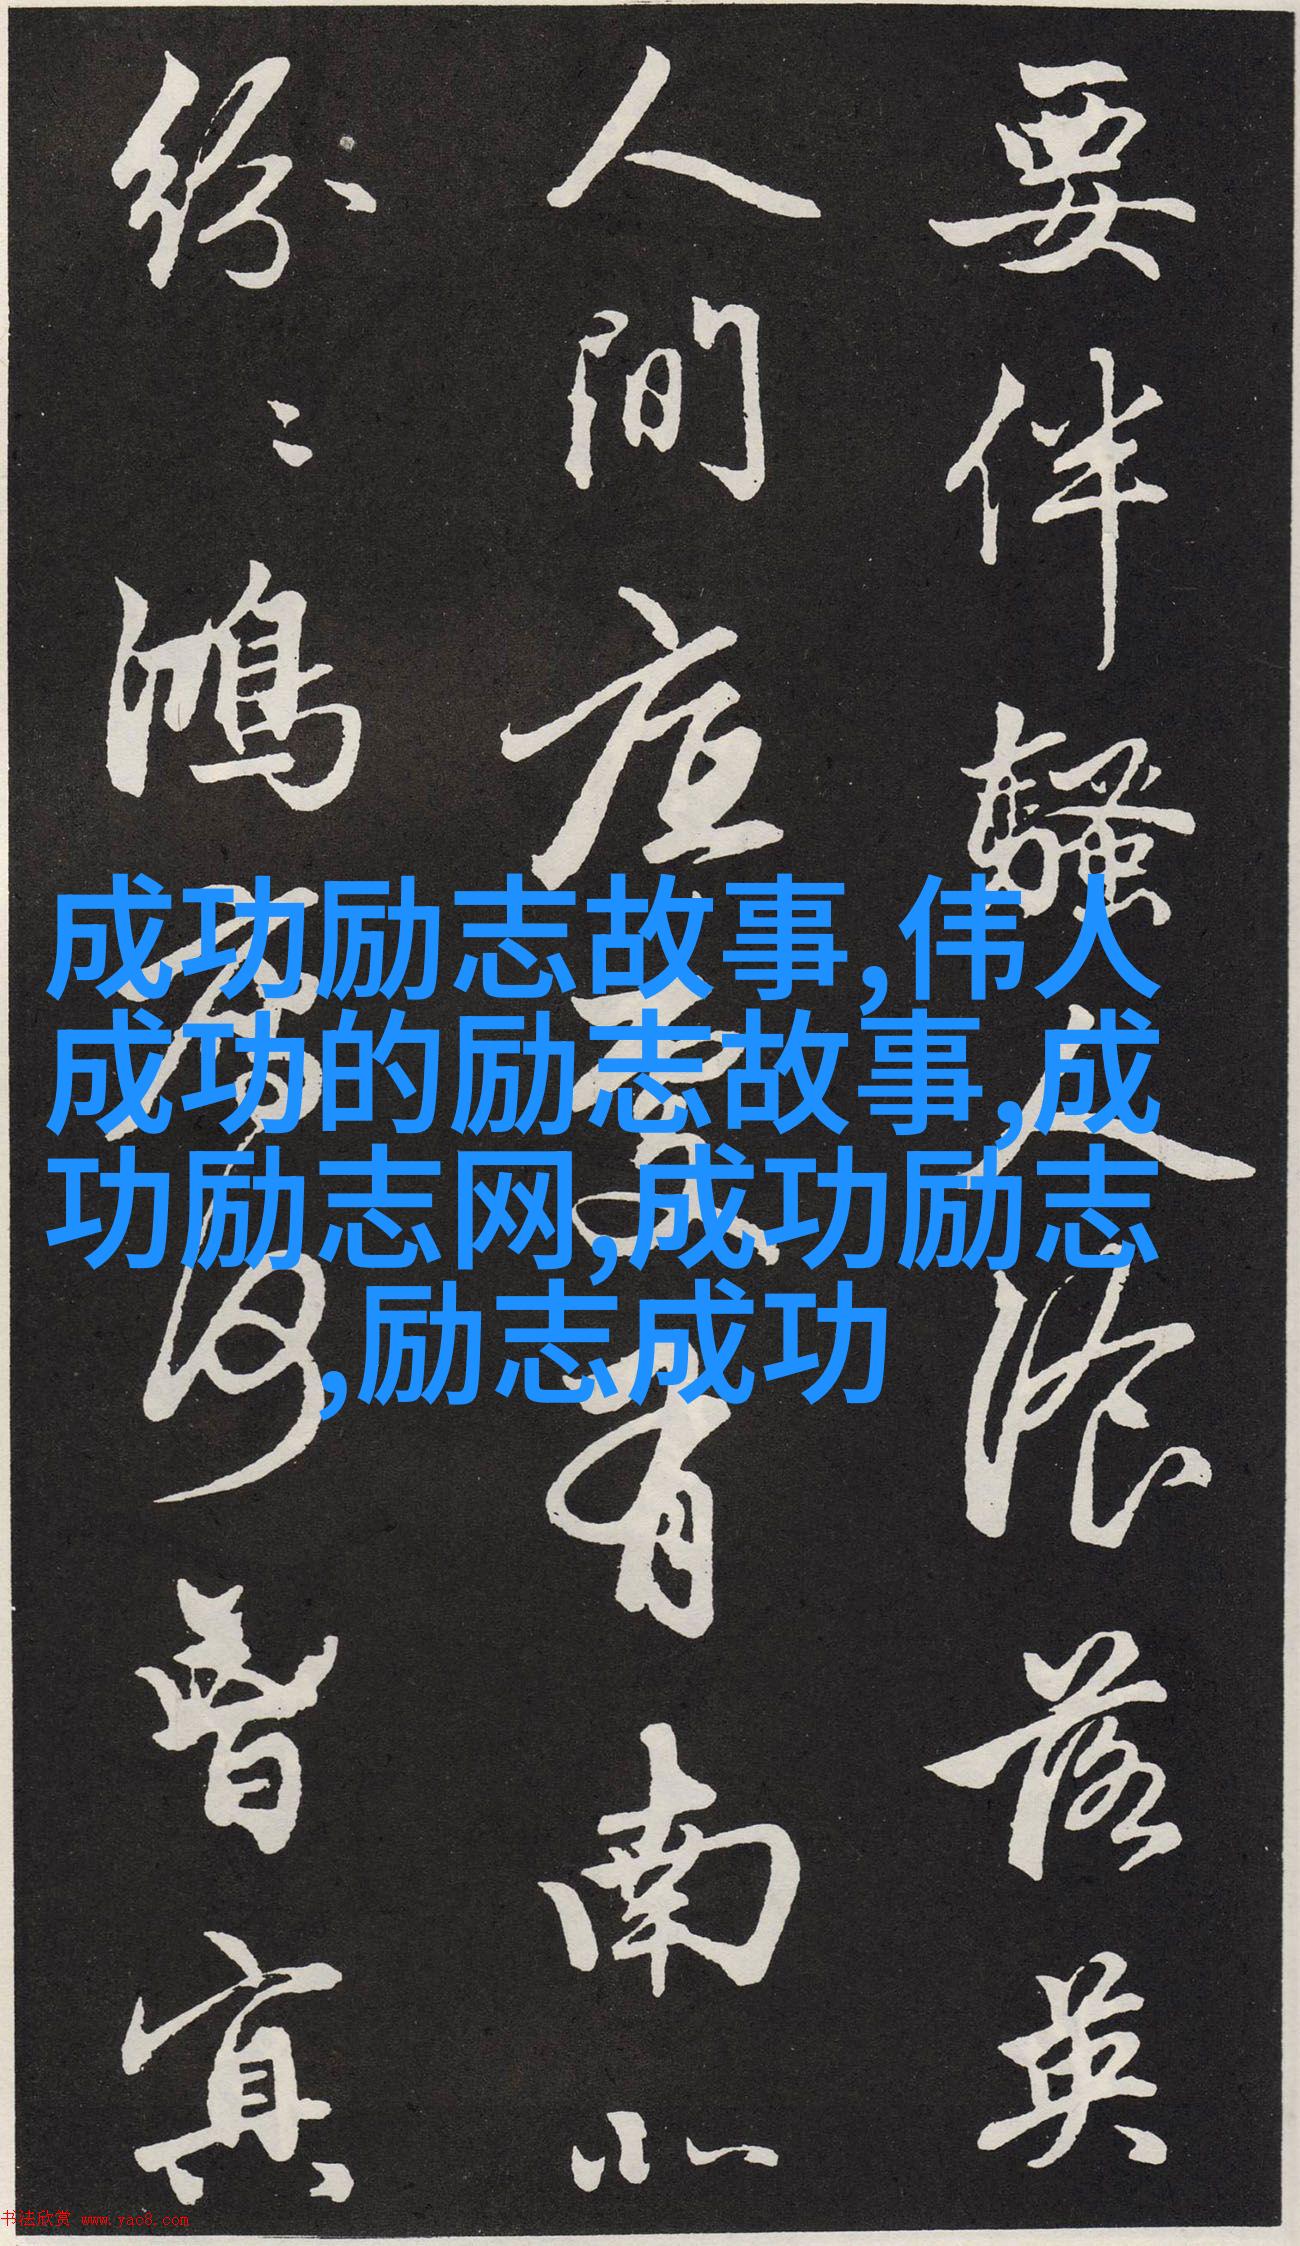 要伴騷人浪落英
人間應更有南北
紛〻鴻鴈何曾宾
成功励志故事,伟人
成功的励志故事,成
功励志网,成功励志
,励志成功
书法欣赏 www.yac8.com